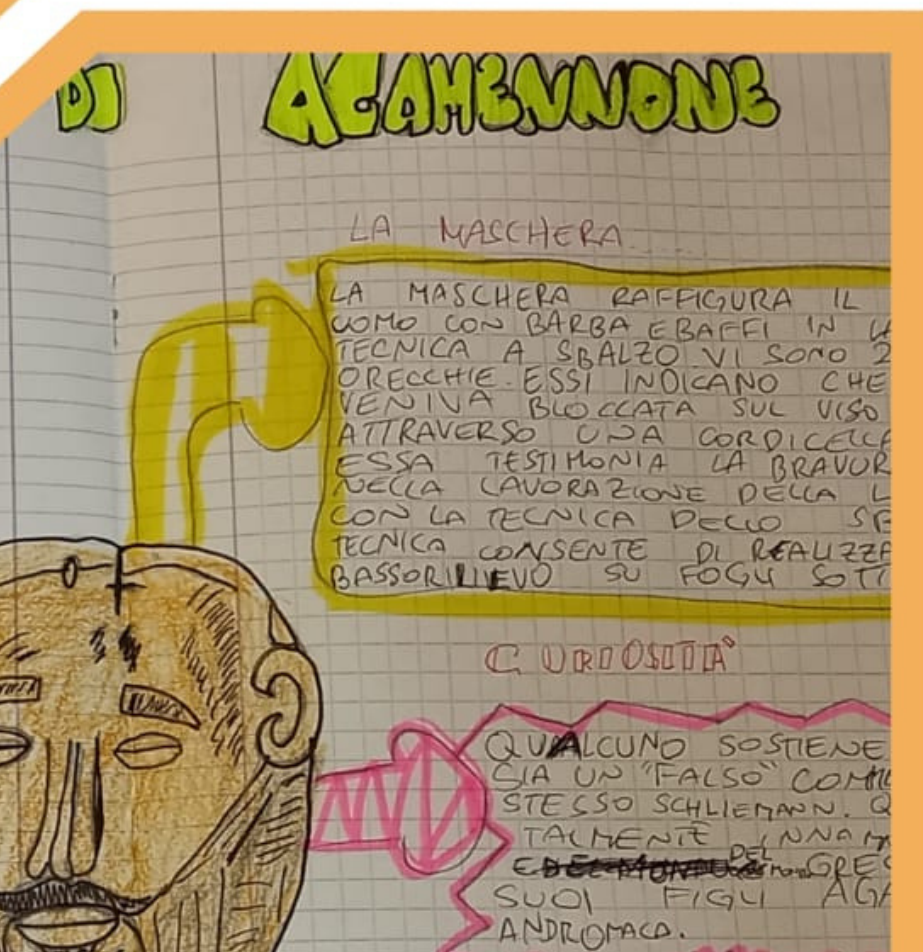 DI AGAMENNONE
LA MASCHERA
LA MASCHERA RAFFIGURA IL
UOMO CON BARBA E BAFFI IN
TECNICA A SBALZO. VI SONO 2
ORECCHIE. ESSI INDICANO CHE
VENIVA BLOCCATA SUL VISO
ATTRAVERSO UNA CORDICELLA
ESSA TESTIMONIA LA BRAVUR
NELLA LAVORAZIONE DELLA L
CON LA TECNICA DELLO
TECNICA CONSENTE DI REALIZZA
BASSORILIEVO SU FOGLI SOTT
CURIOSITÀ
QUALCUNO SOSTIENE
SIA UN "FALSO"
STESSO SCHLIEMANN. Q
TALMENTE INNAM
E DEL GREC
SUOI FIGLI AGA
ANDROMACA.